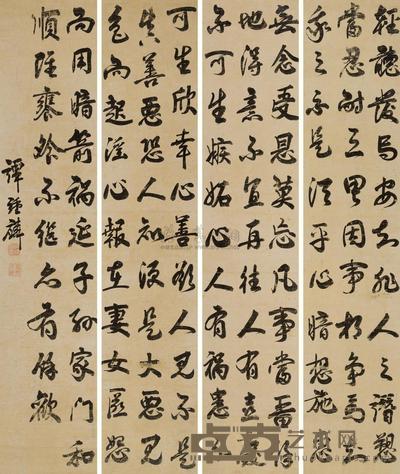 輕聽發言安知非人之譖愬
當忍耐三思因事相爭焉知非
我之不是須平心暗想施惠
無念受恩莫忘凡事當留餘
地得意不宜再往人有喜慶
不可生嫉妬心人有禍患不
可生欣幸心善欲人見不是
真善惡恐人知便是大惡見
色而起淫心報在妻女匿怨
而用暗箭禍延子孫家門和
順雖饔飧不繼亦有餘歡
譚鍾麟